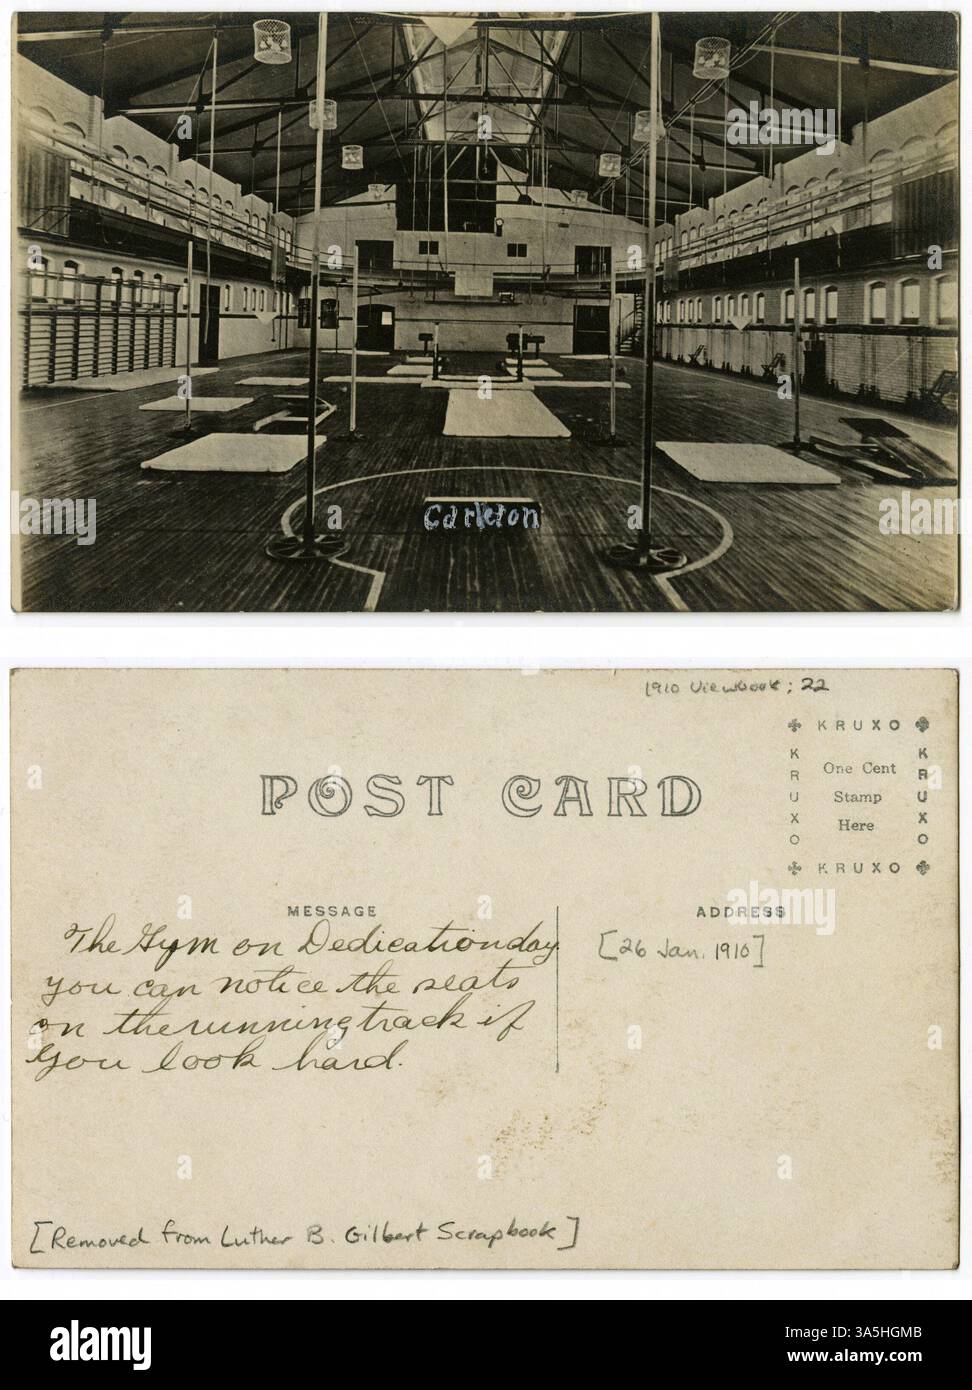 Carleton
1910 Viewbook; 22
KRUXO
KRUXO
One Cent
Stamp
Here
KRUXO
KRUXO
POST CARD
MESSAGE
ADDRESS
The Gym on Dedication day
you can notice the seats
on the running track if
you look hard.
[26 Jan. 1910]
[Removed from Luther B. Gilbert Scrapbook]
alamy
a
alamy
Image ID: 3A5HGMB
www.alamy.com